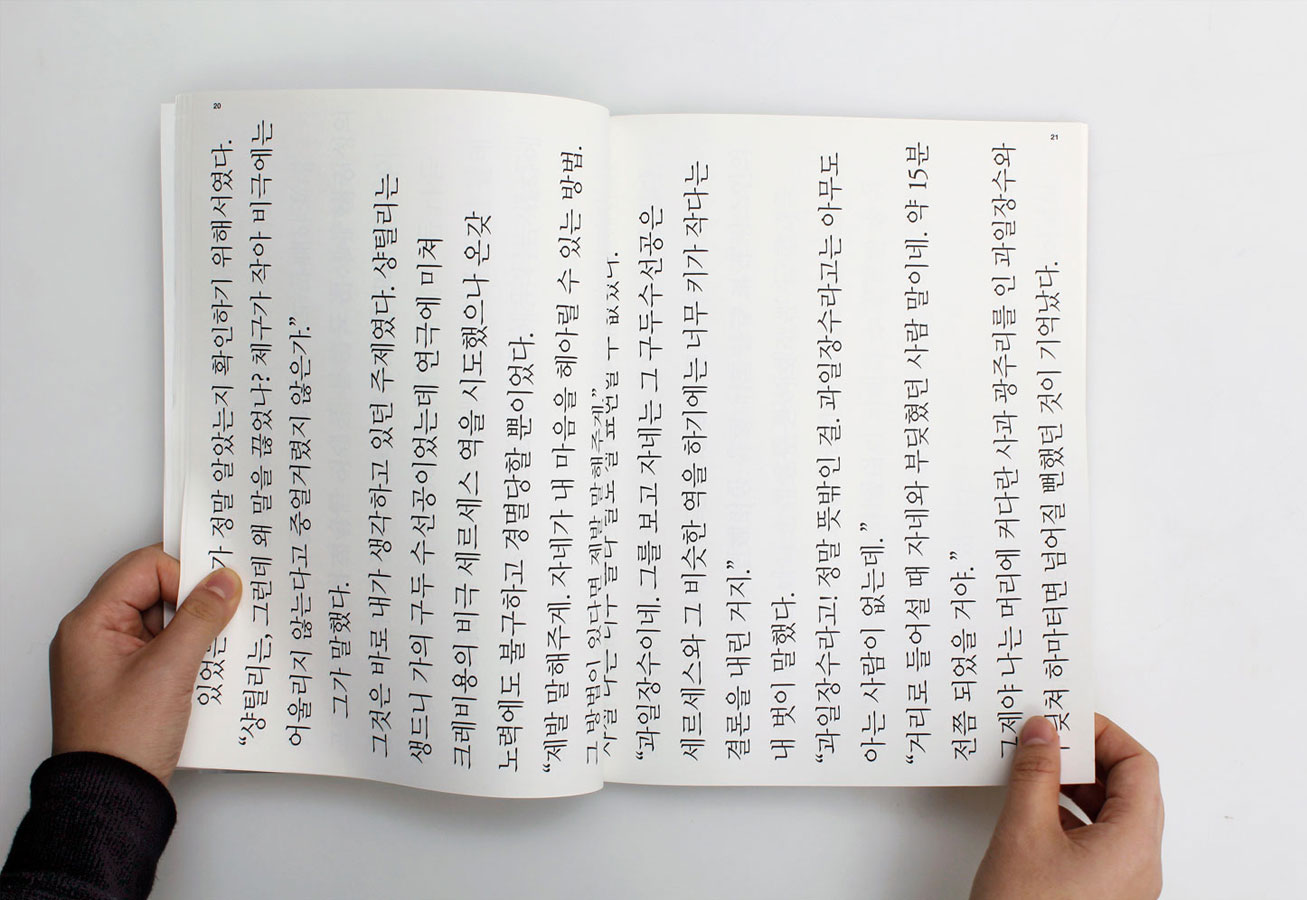 20
가 정말 알았는지 확인하기 위해서였다.
“샹틸리는, 그런데 왜 말을 끊었나? 체구가 작아 비극에는
어울리지 않는다고 중얼거렸지 않은가.”
그가 말했다.
그것은 바로 내가 생각하고 있던 주제였다. 샹틸리는
생드니 가의 구두 수선공이었는데 연극에 미쳐
크레비용의 비극 세르세스 역을 시도했으나 온갖
노력에도 불구하고 경멸당할 뿐이었다.
“제발 말해주게. 자네가 내 마음을 헤아릴 수 있는 방법.
그 방법이 있다면 제발 말해주게.”
21
“과일장수이네. 그를 보고 자네는 그 구두수선공은
세르세스와 그 비슷한 역을 하기에는 너무 키가 작다는
결론을 내린 거지.”
내 벗이 말했다.
“과일장수라고! 정말 뜻밖인 걸. 과일장수라고는 아무도
아는 사람이 없는데.”
“거리로 들어설 때 자네와 부딪혔던 사람 말이네. 약 15분
전쯤 되었을 거야.”
그제야 나는 머리에 커다란 사과 광주리를 인 과일장수와
하마터면 넘어질 뻔했던 것이 기억났다.